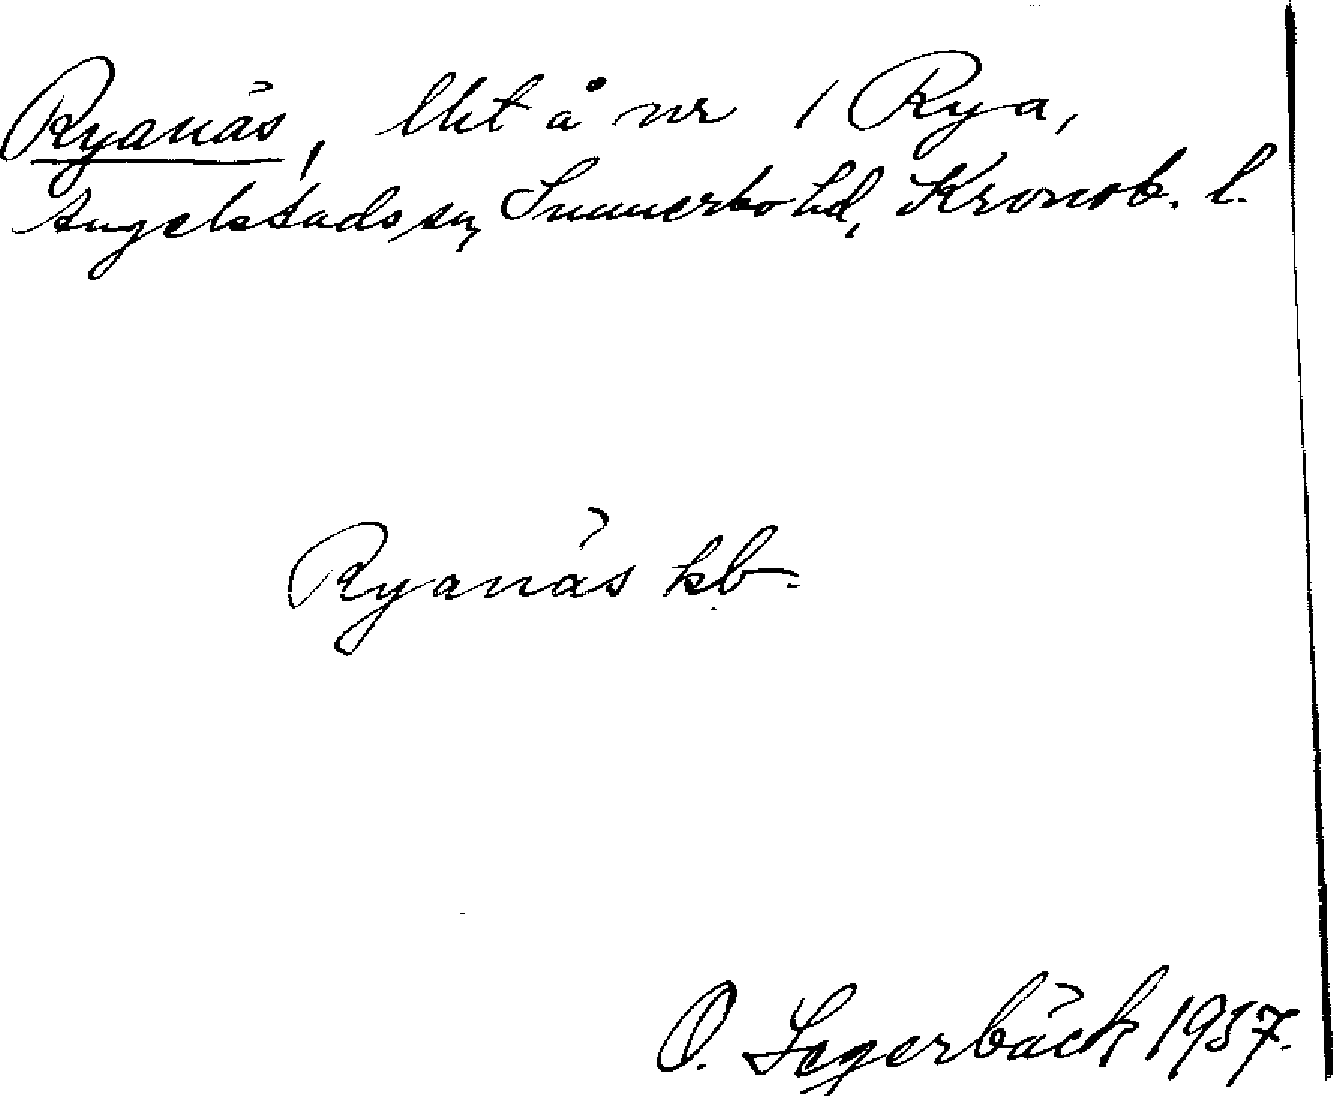 Ryanäs, lht å nr 1 Rya,
Angelstads sn, Sunnerbo hd, Kronob. l.
Ryanäs kb.
O. Segerbäck 1957.